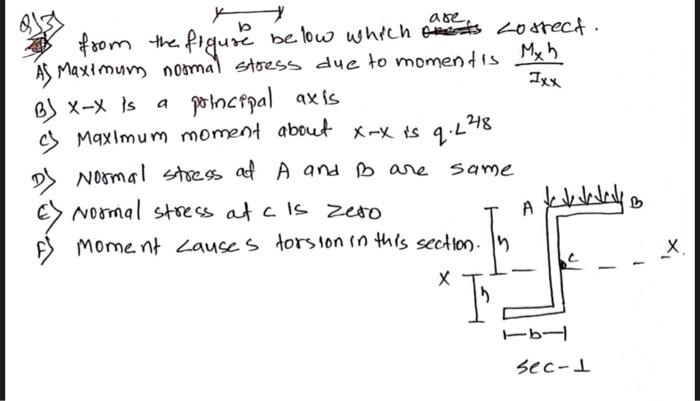 Q/3)
b
from the figure below which are correct.
A) Maximum normal stress due to moment is Mxh / Ixx
B) x-x is a principal axis
C) Maximum moment about x-x is q.L²/8
D) Normal stress at A and B are same
E) Normal stress at c is zero
F) Moment causes torsion in this section.
A
B
h
C
X
X
h
b
sec-1